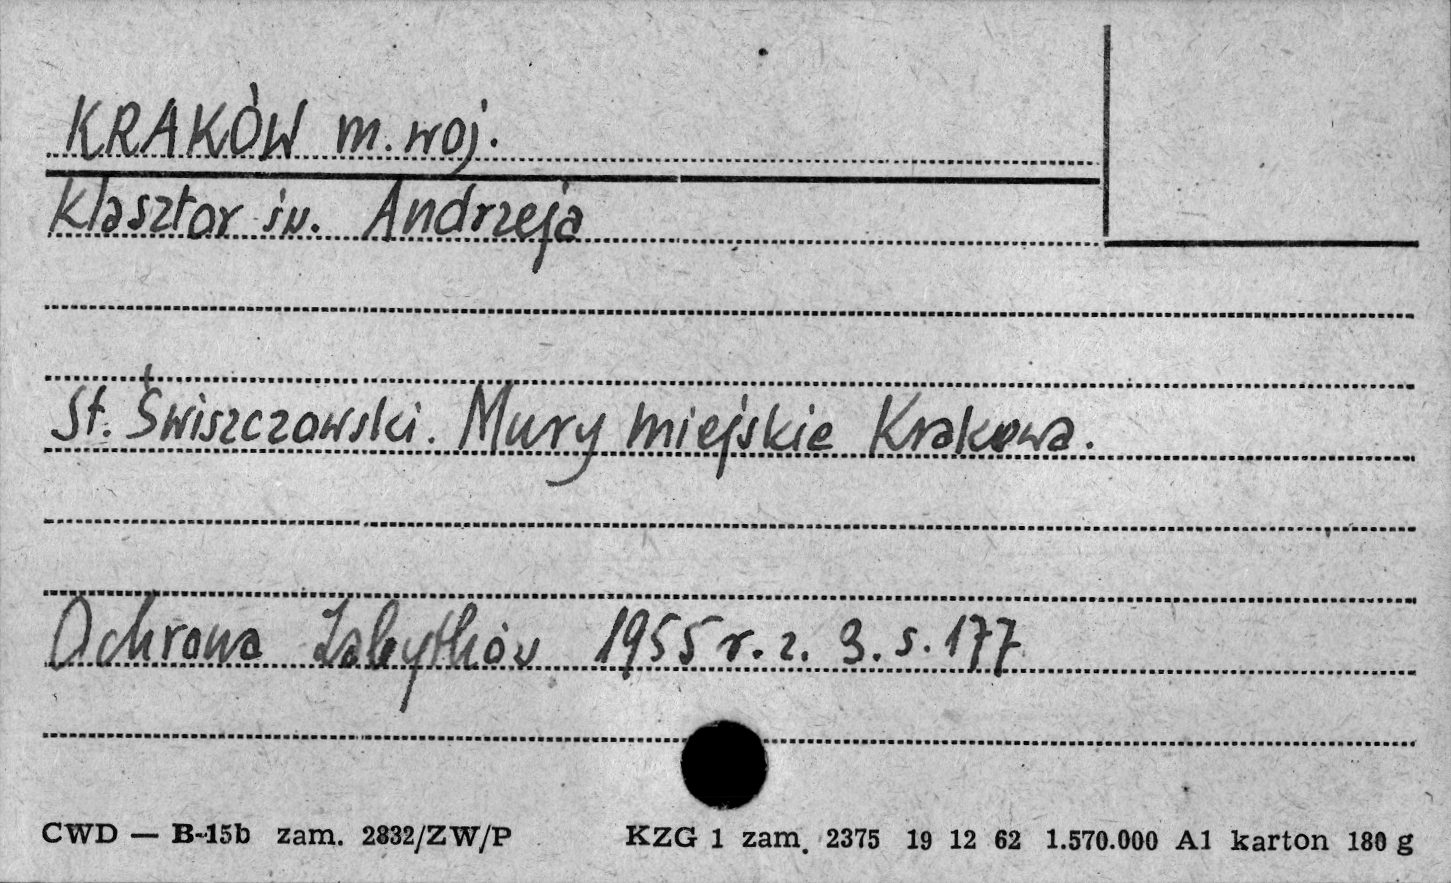 KRAKÓW m. woj.
Klasztor św. Andrzeja
St. Świszczowski. Mury miejskie Krakowa.
Ochrona Zabytków 1955 r. z. 3. s. 177
CWD — B-15b zam. 2832/ZW/P KZG 1 zam. 2375 19 12 62 1.570.000 A1 karton 180 g